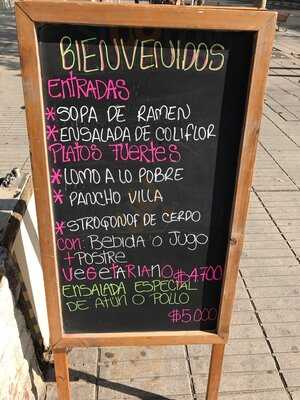 BIENVENIDOS
ENTRADAS
* SOPA DE RAMEN
* ENSALADA DE COLIFLOR
PLATOS FUERTES
* LOMO A LO POBRE
* PANCHO VILLA
* STROGONOF DE CERDO
CON: BEBIDA O JUGO
+ POSTRE
VEGETARIANO $4.700
ENSALADA ESPECIAL
DE ATUN O POLLO
$5.000